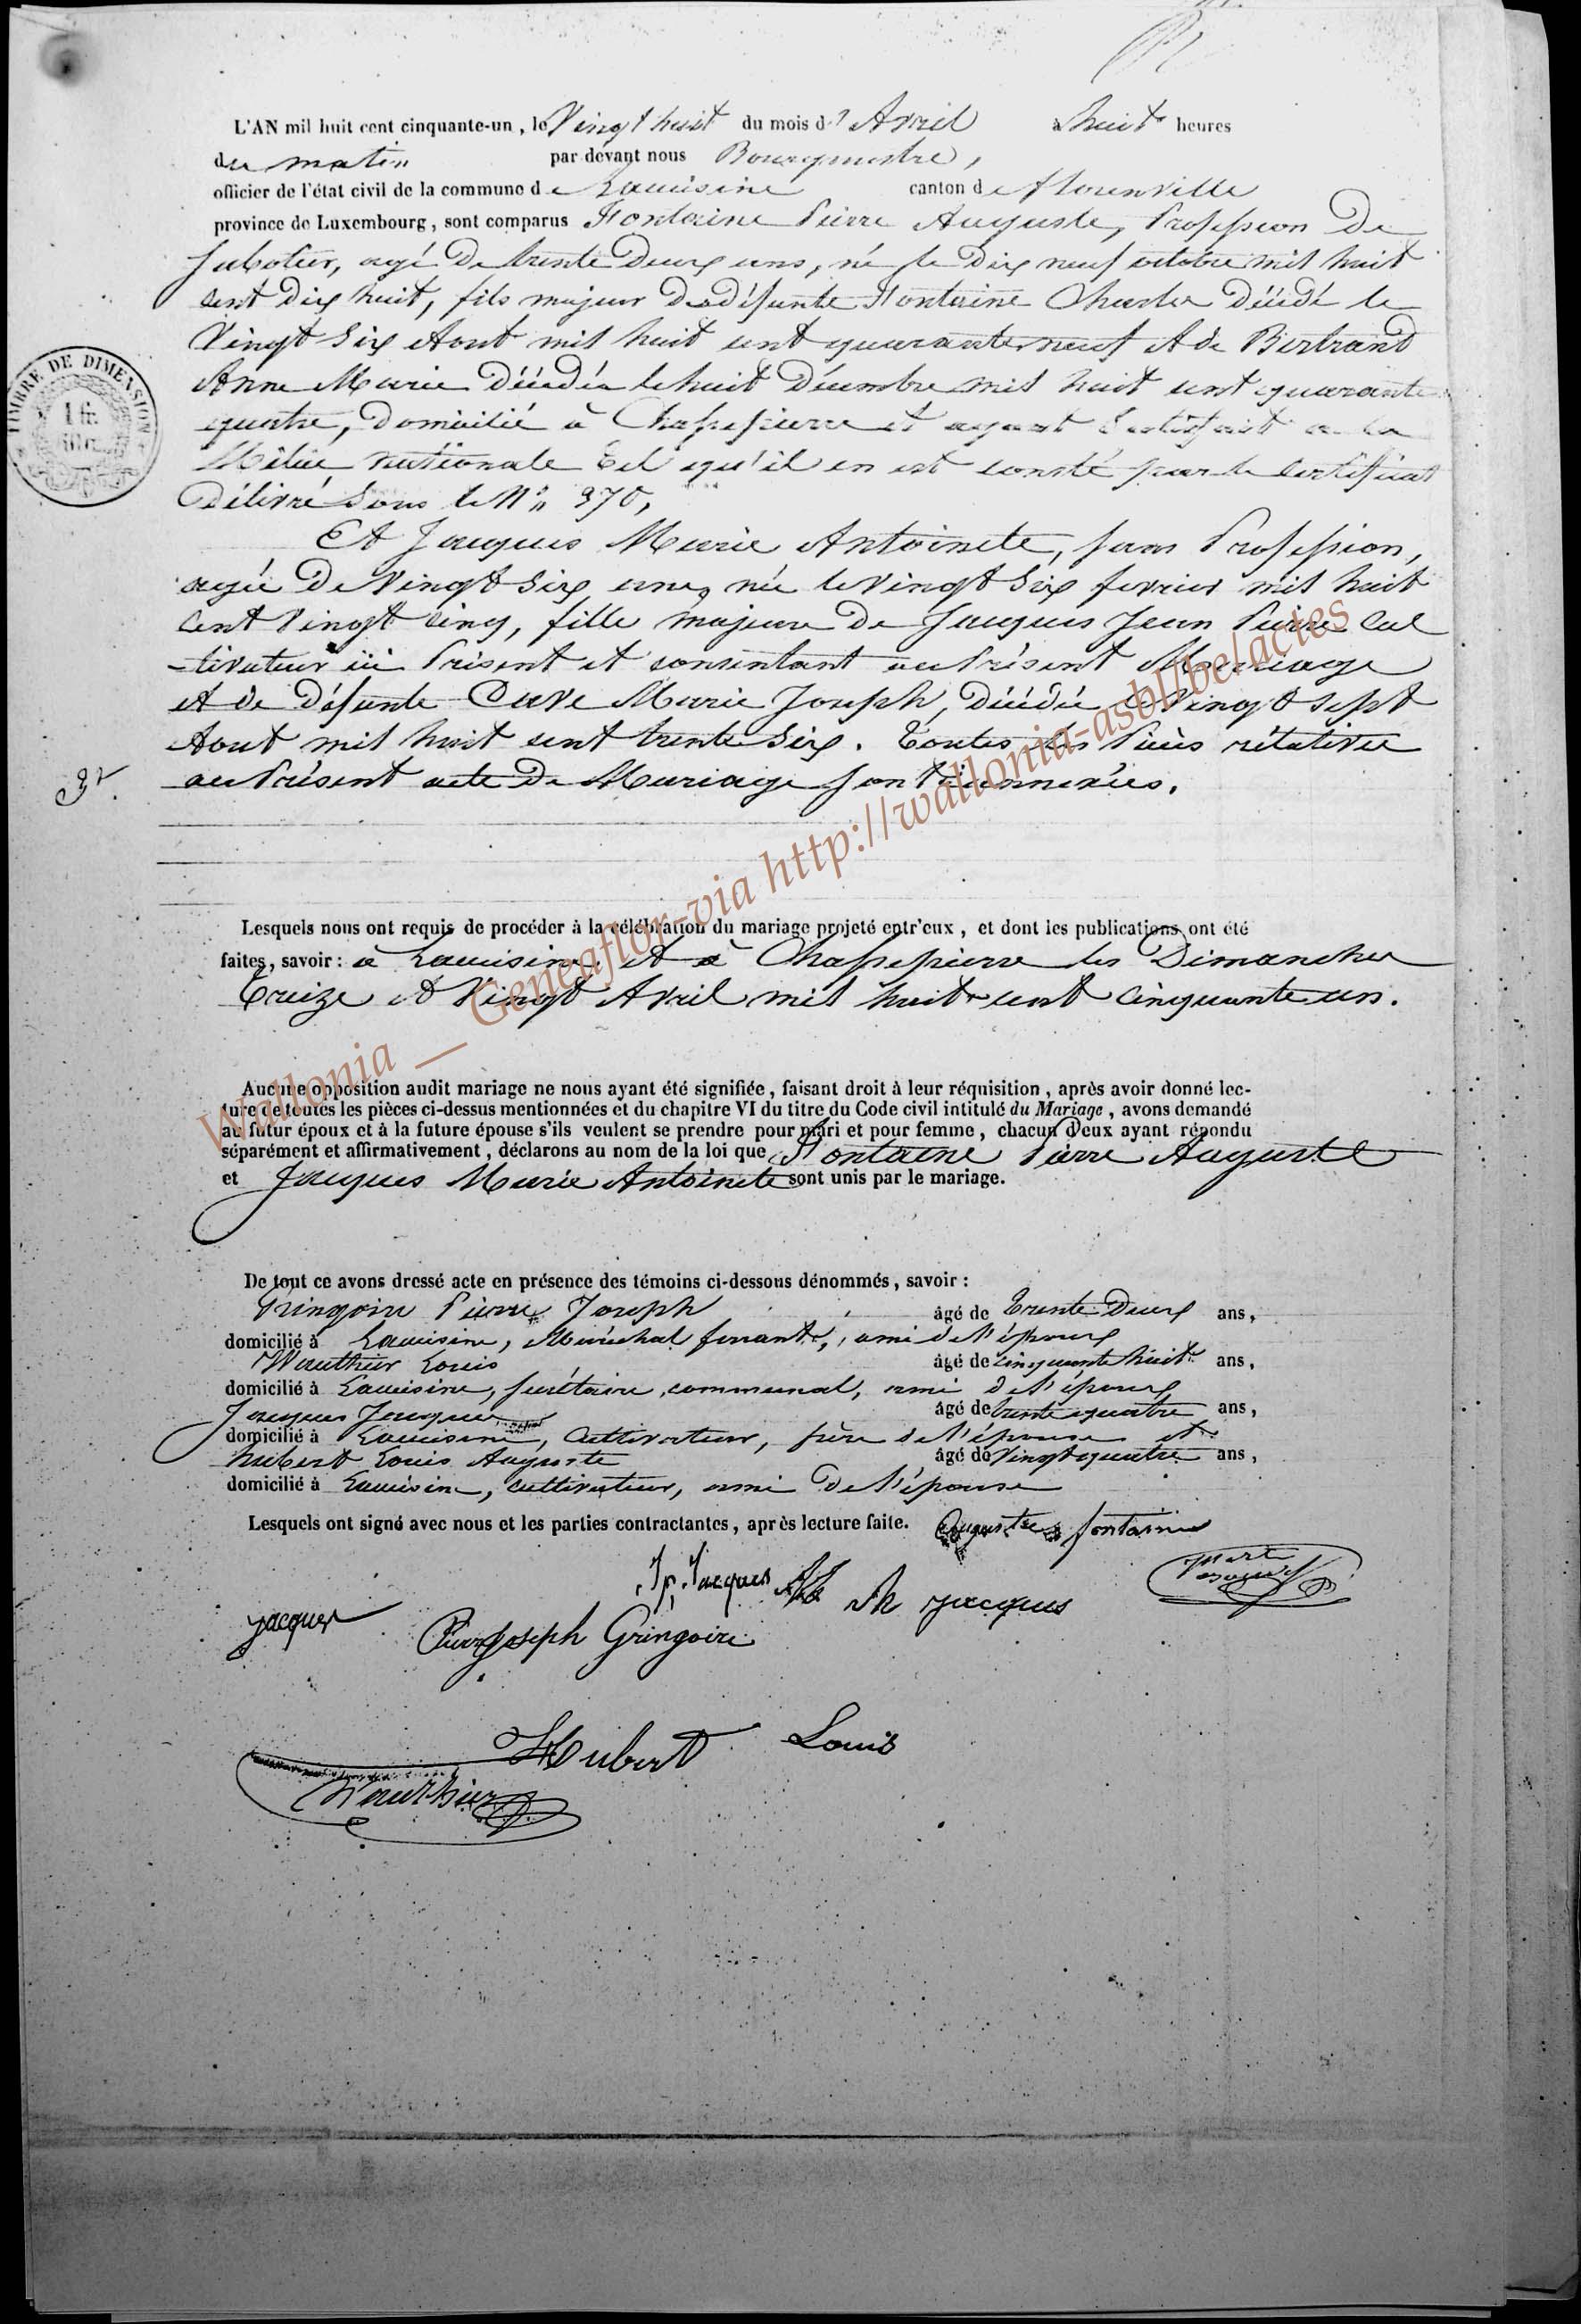 L'AN mil huit cent cinquante-un, le Vingt huit du mois d'Avril à huit heures
du matin par devant nous Bourgmestre,
officier de l'état civil de la commune de Lacuisine canton de florenville
province de Luxembourg, sont comparus Fontaine Pierre Auguste, Profession De
Sabotier, agé De trente Deux ans, né le Dix neuf octobre mil huit
cent Dix huit, fils majeur De défunte Fontaine Charles Décédé le
Vingt Six Aout mil huit cent quarante neuf et de Bertrand
Anne Marie Décédée le huit Décembre mil huit cent quarante
quatre, Domicilié à Chassepierre et ayant Satisfait a la
Milice nationale tel qu'il en est consté par le Certificat
Délivré Sous le N° 370,
Et Jacques Marie Antoinete, Sans Profession,
agée De Vingt Six ans, née le Vingt Six fevrier mil huit
Cent Vingt Cinq, fille majeure De Jacques Jean Pierre Cul
-tivateur ici Présent et consentant au Présent Mariage
et de Défunte Cave Marie Joseph, Décédée le Vingt Sept
Aout mil huit cent trente Six. Toutes les Pièces rélatives
au Présent acte De Mariage Sont i annexées.
32.
Lesquels nous ont requis de procéder à la célébration du mariage projeté entr'eux, et dont les publications ont été
faites, savoir : à Lacuisine et à Chassepierre les Dimanches
Treize et Vingt Avril mil huit cent Cinquante un.
Aucune opposition audit mariage ne nous ayant été signifiée, faisant droit à leur réquisition, après avoir donné lec-
ture de toutes les pièces ci-dessus mentionnées et du chapitre VI du titre du Code civil intitulé du Mariage, avons demandé
au futur époux et à la future épouse s'ils veulent se prendre pour mari et pour femme, chacun d'eux ayant répondu
séparément et affirmativement, déclarons au nom de la loi que Fontaine Pierre Auguste
et Jacques Marie Antoinete sont unis par le mariage.
De tout ce avons dressé acte en présence des témoins ci-dessous dénommés, savoir :
Gringoire Pierre Joseph âgé de Trente Deux ans,
domicilié à Lacuisine, Maréchal ferrant, ami de l'époux
Wauthier Louis âgé de cinquante huit ans,
domicilié à Lacuisine, Secrétaire communal, ami de l'époux
Jacques Jacques âgé de trente quatre ans,
domicilié à Lacuisine, Cultivateur, frère de l'épouse et
hubert Louis Auguste âgé de Vingt quatre ans,
domicilié à Lacuisine, cultivateur, ami De l'épouse
Lesquels ont signé avec nous et les parties contractantes, après lecture faite. auguste fontaine
J. p. Jacques M jacques
jacques Pierre Joseph Gringoire
Hubert Louis
Wauthier
TIMBRE DE DIMENSION
1 fr.
Wallonia — Geneaflor-via http://wallonia-asbl/be/actes